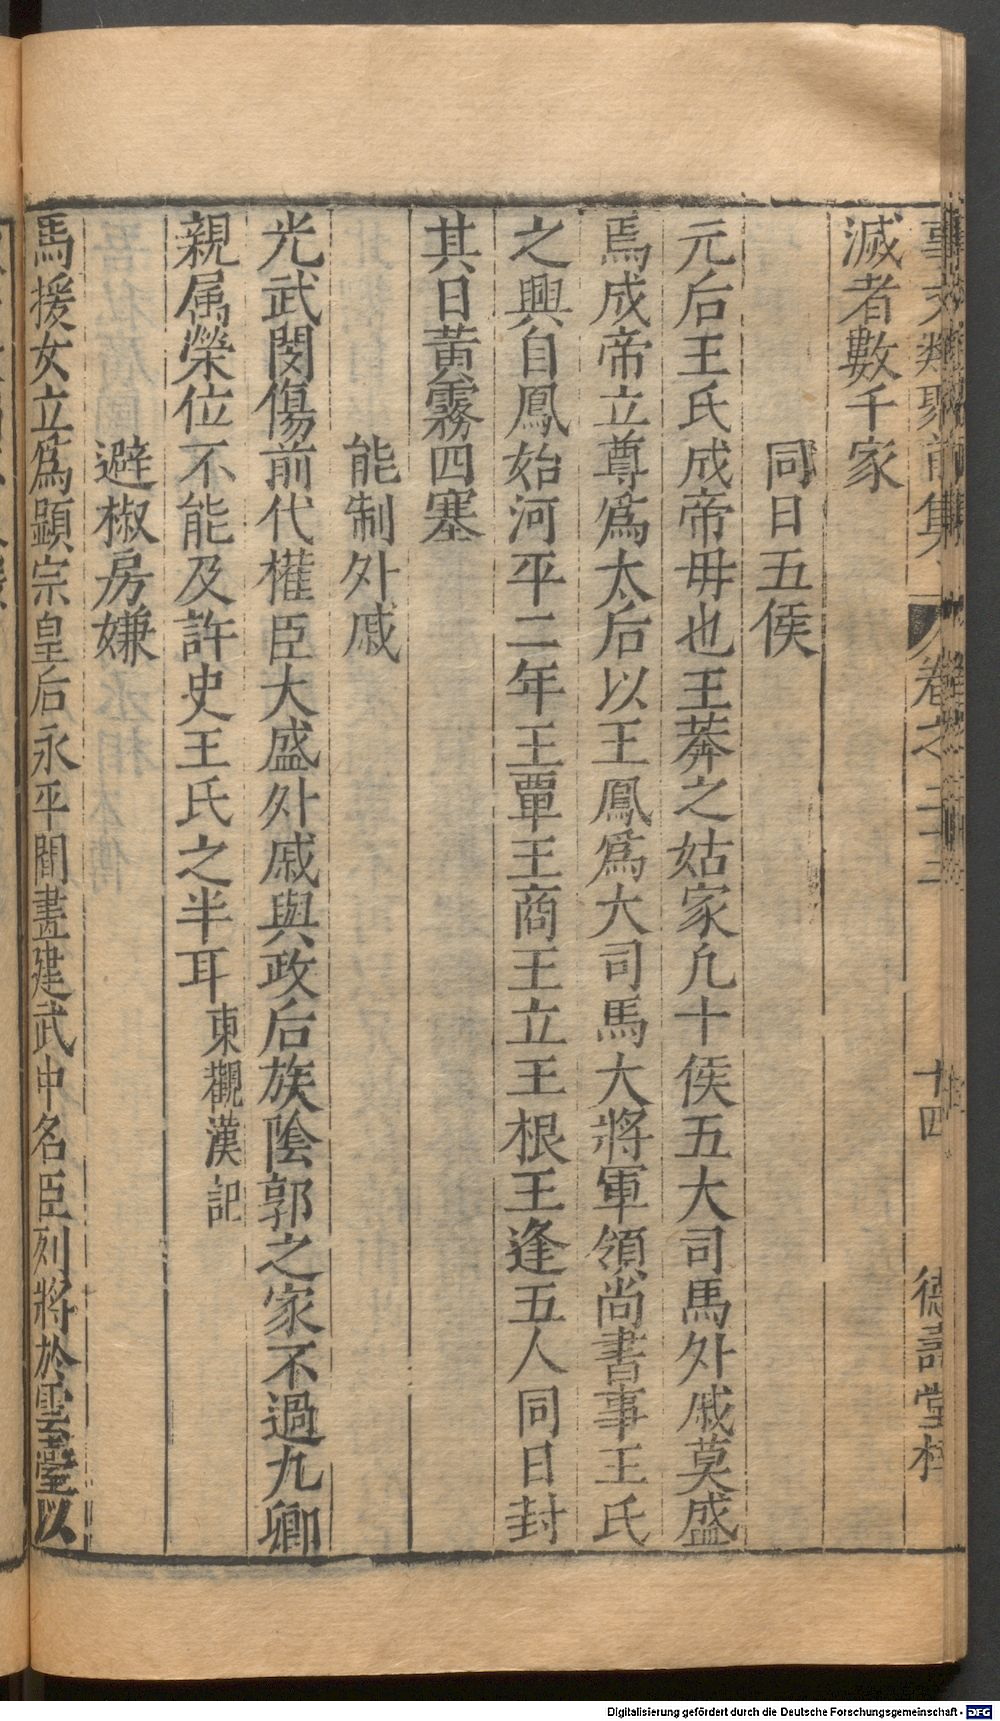 事文類聚前集 卷之二十三 十四 德壽堂梓
滅者數千家
同日五侯
元后王氏成帝毋也王莽之姑家凢十侯五大司馬外戚莫盛
焉成帝立尊爲太后以王鳳爲大司馬大將軍領尚書事王氏
之興自鳳始河平二年王覃王商王立王根王逢五人同日封
其日黄霧四塞
能制外戚
光武閔傷前代權臣大盛外戚與政后族陰郭之家不過九卿
親属榮位不能及許史王氏之半耳東觀漢記
避椒房嫌
馬援女立爲顕宗皇后永平間畫建武中名臣列將於雲臺以
Digitalisierung gefördert durch die Deutsche Forschungsgemeinschaft - DFG